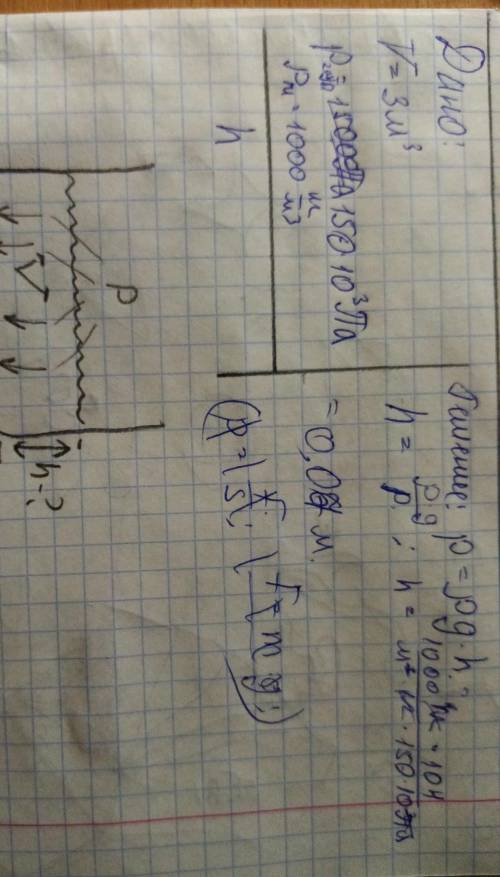 Дано:
V = 3 м³
P = 150 · 10³ Па
ρ = 1000 кг/м³
h
Решение: p = ρg · h;
h = ρ·g / p ; h = 1000 кг · 10 Н / м³ кг · 150 · 10³ Па
= 0,0 м.
(p = F/S; F = m g;)
P
h - ?